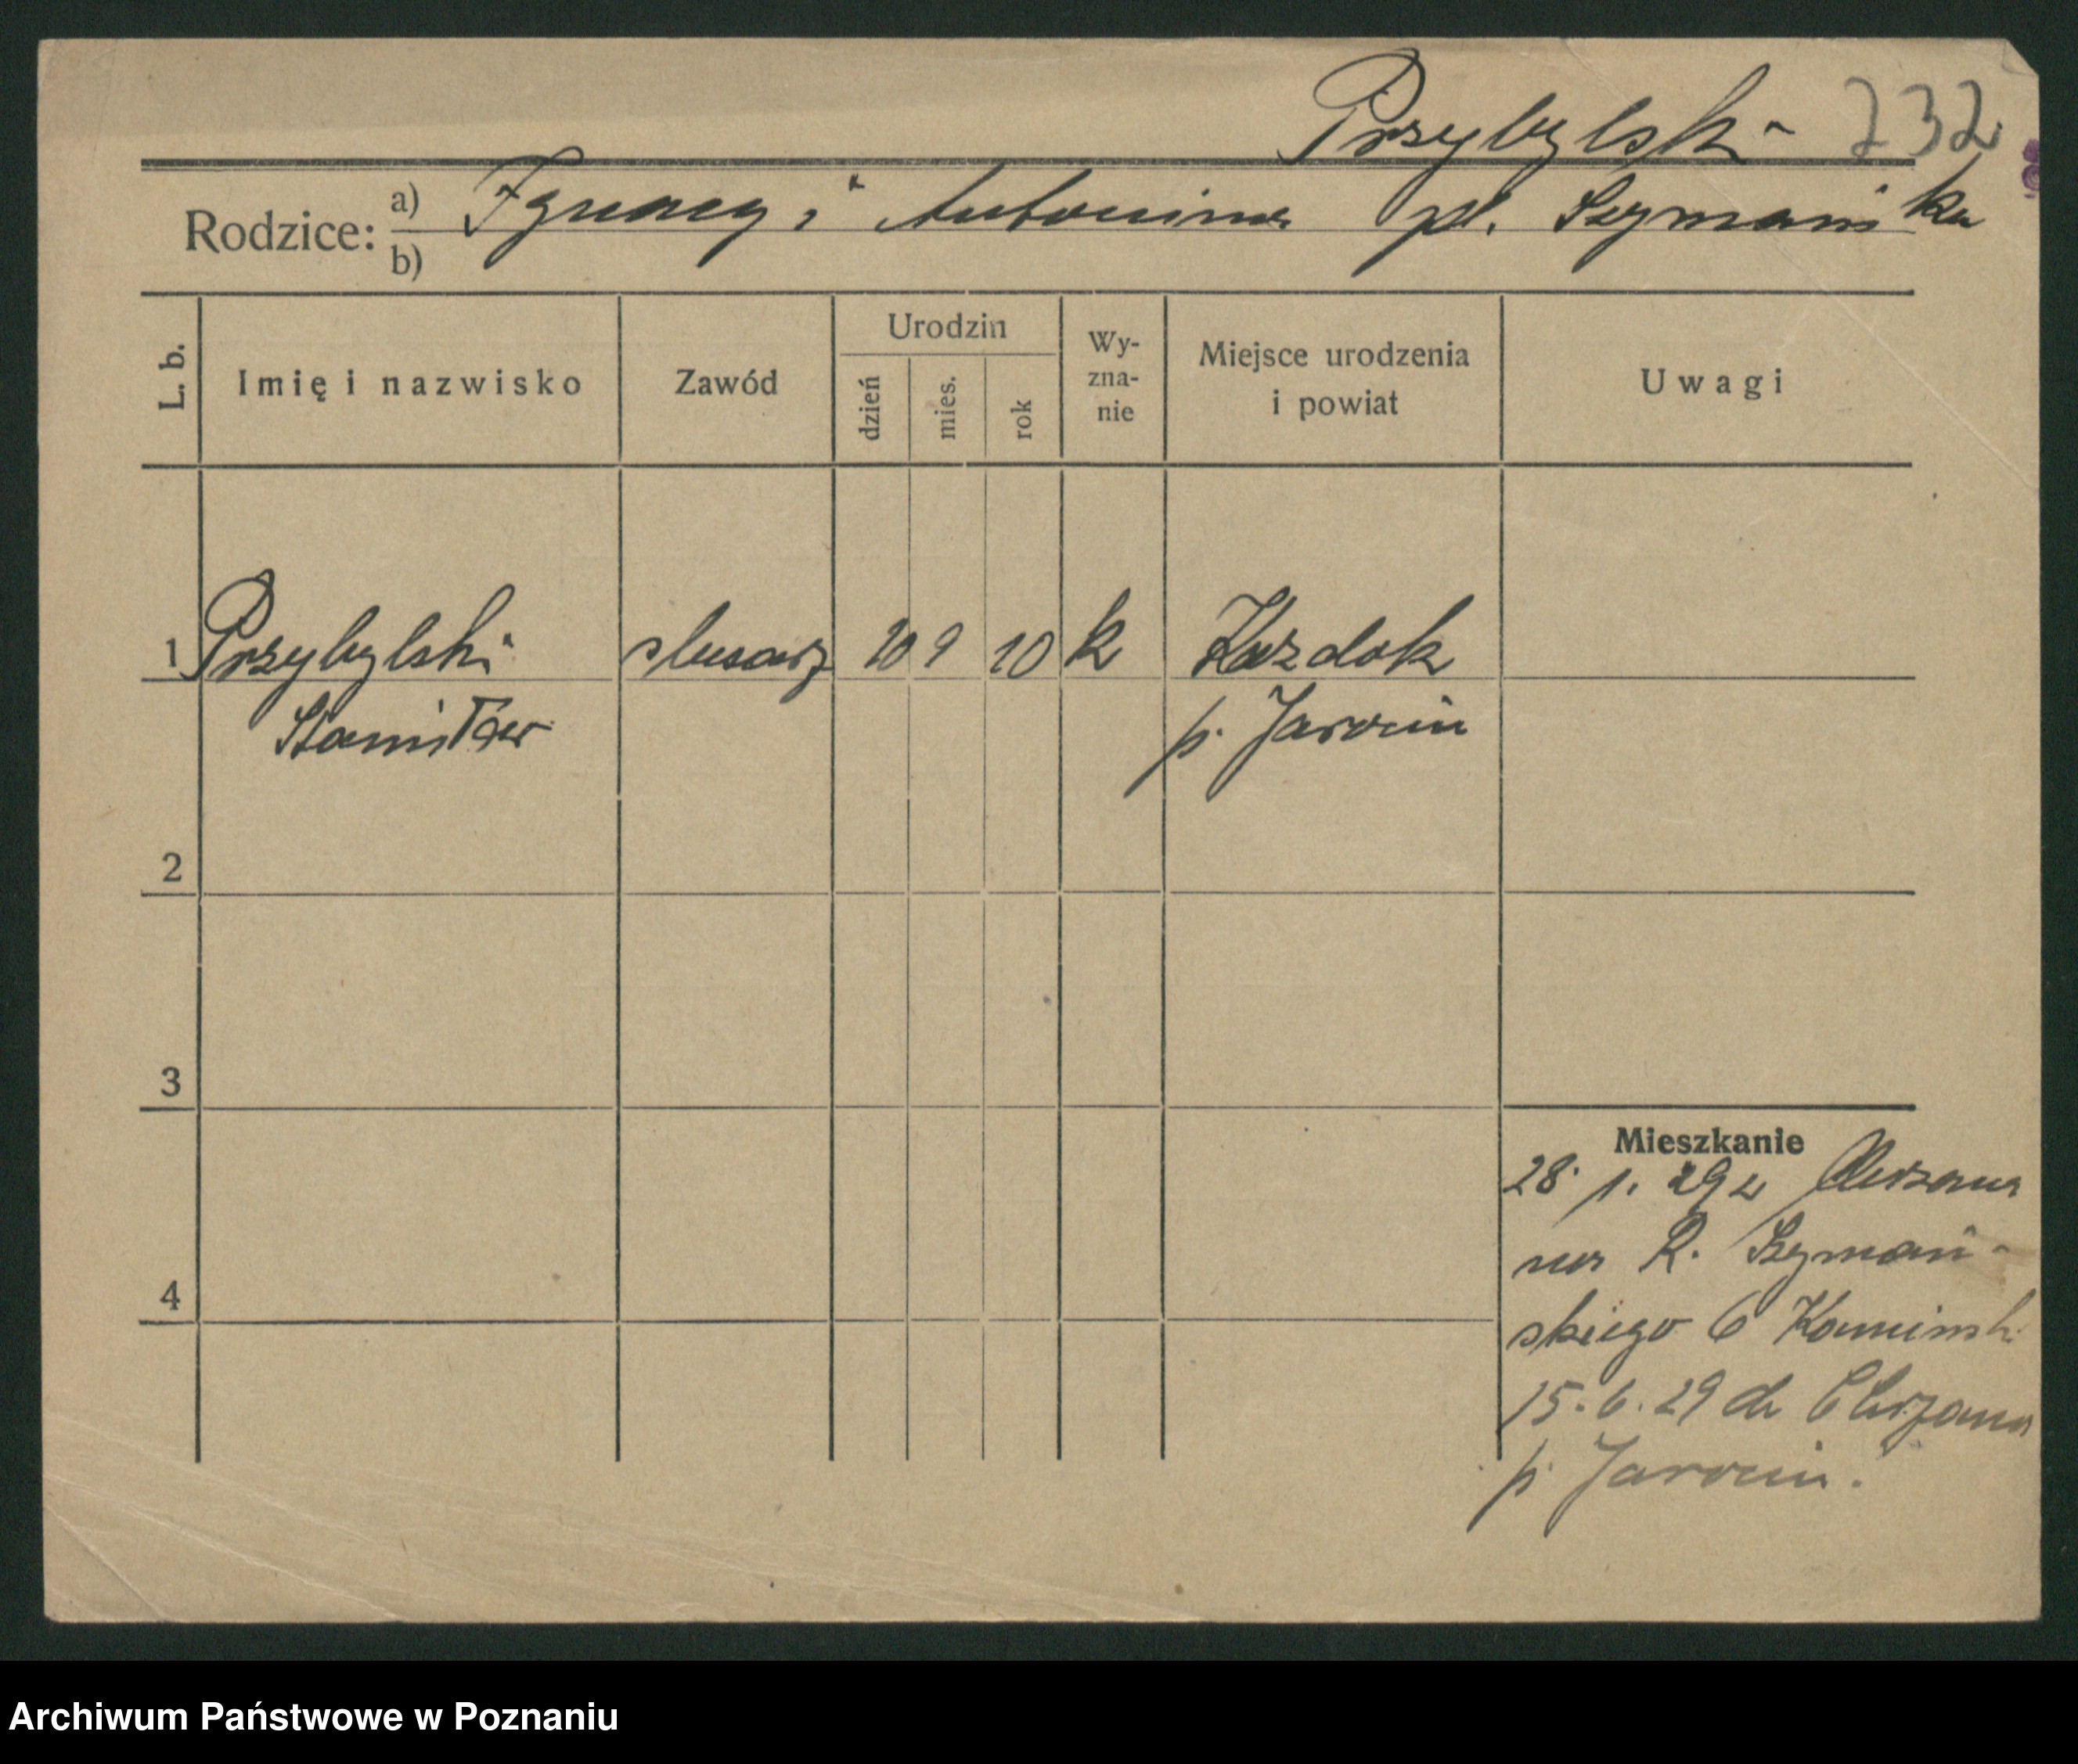 Przybylski 232
Rodzice: a) Ignacy i Antonina pł. Szymanska
b)
L. b. Imię i nazwisko Zawód Urodzin dzień mies. rok Wy-zna-nie Miejsce urodzenia i powiat Uwagi
1 Przybylski slusarz 20 9 10 k Kazdok
Stanisław p. Jarocin
2
3
Mieszkanie
28. 1. 29 z Chrzana
na R. Szymań-
4
skiego 6 Kaminski
15. 6. 29 do Chrzana
p. Jarocin.
Archiwum Państwowe w Poznaniu